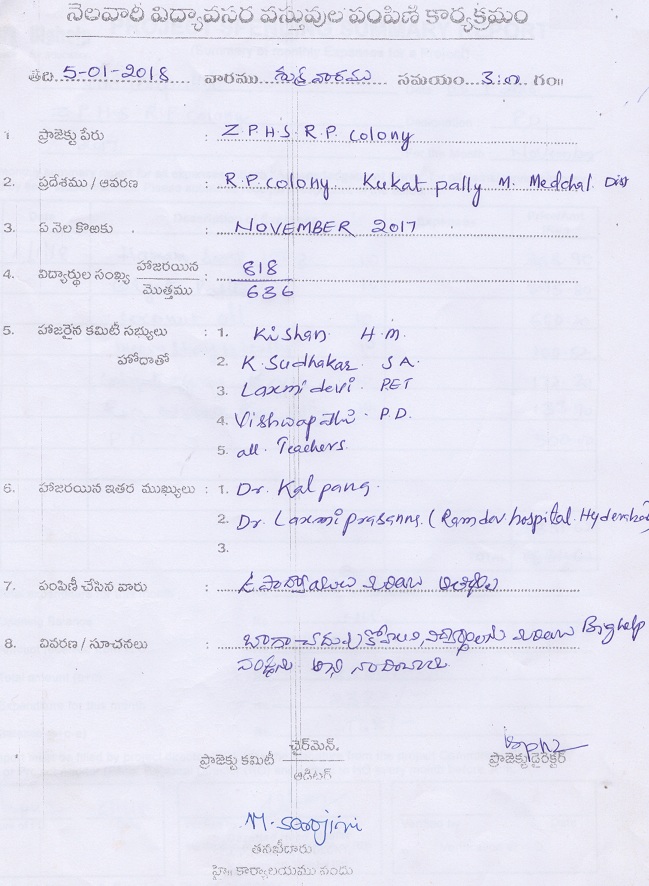 నెలవారి విద్యావసర వస్తువుల పంపిణి కార్యక్రమం
తేది 5-01-2018 వారము శుక్రవారము సమయం 3:00 గం॥
1 ప్రాజెక్టు పేరు : Z.P.H.S. R.P. colony
2. ప్రదేశము / ఆవరణ : R.P. colony Kukat pally M. Medchal. Dist
3. ఏ నెల కొఱకు : NOVEMBER 2017
4. విద్యార్థుల సంఖ్య హాజరయిన : 818
మొత్తము 636
5. హాజరైన కమిటీ సభ్యులు : 1. Kishan H.M.
హోదాతో 2. K. Sudhakar S A.
3. Laxmi devi. PET
4. P.D.
5. all Teachers.
6. హాజరయిన ఇతర ముఖ్యులు : 1. Dr. Kalpana.
2. Dr. Laxmi prasanna. (Ramdev hospital. Hyderabad
3.
7. పంపిణీ చేసిన వారు : మరియు
8. వివరణ / సూచనలు : బాగా మరియు Bighelp
చైర్‌మెన్.
ప్రాజెక్టు కమిటీ ప్రాజెక్టు డైరెక్టర్
ఆడిటర్
M. Saarojini
తనఖీదారు
హై॥ కార్యాలయము నందు